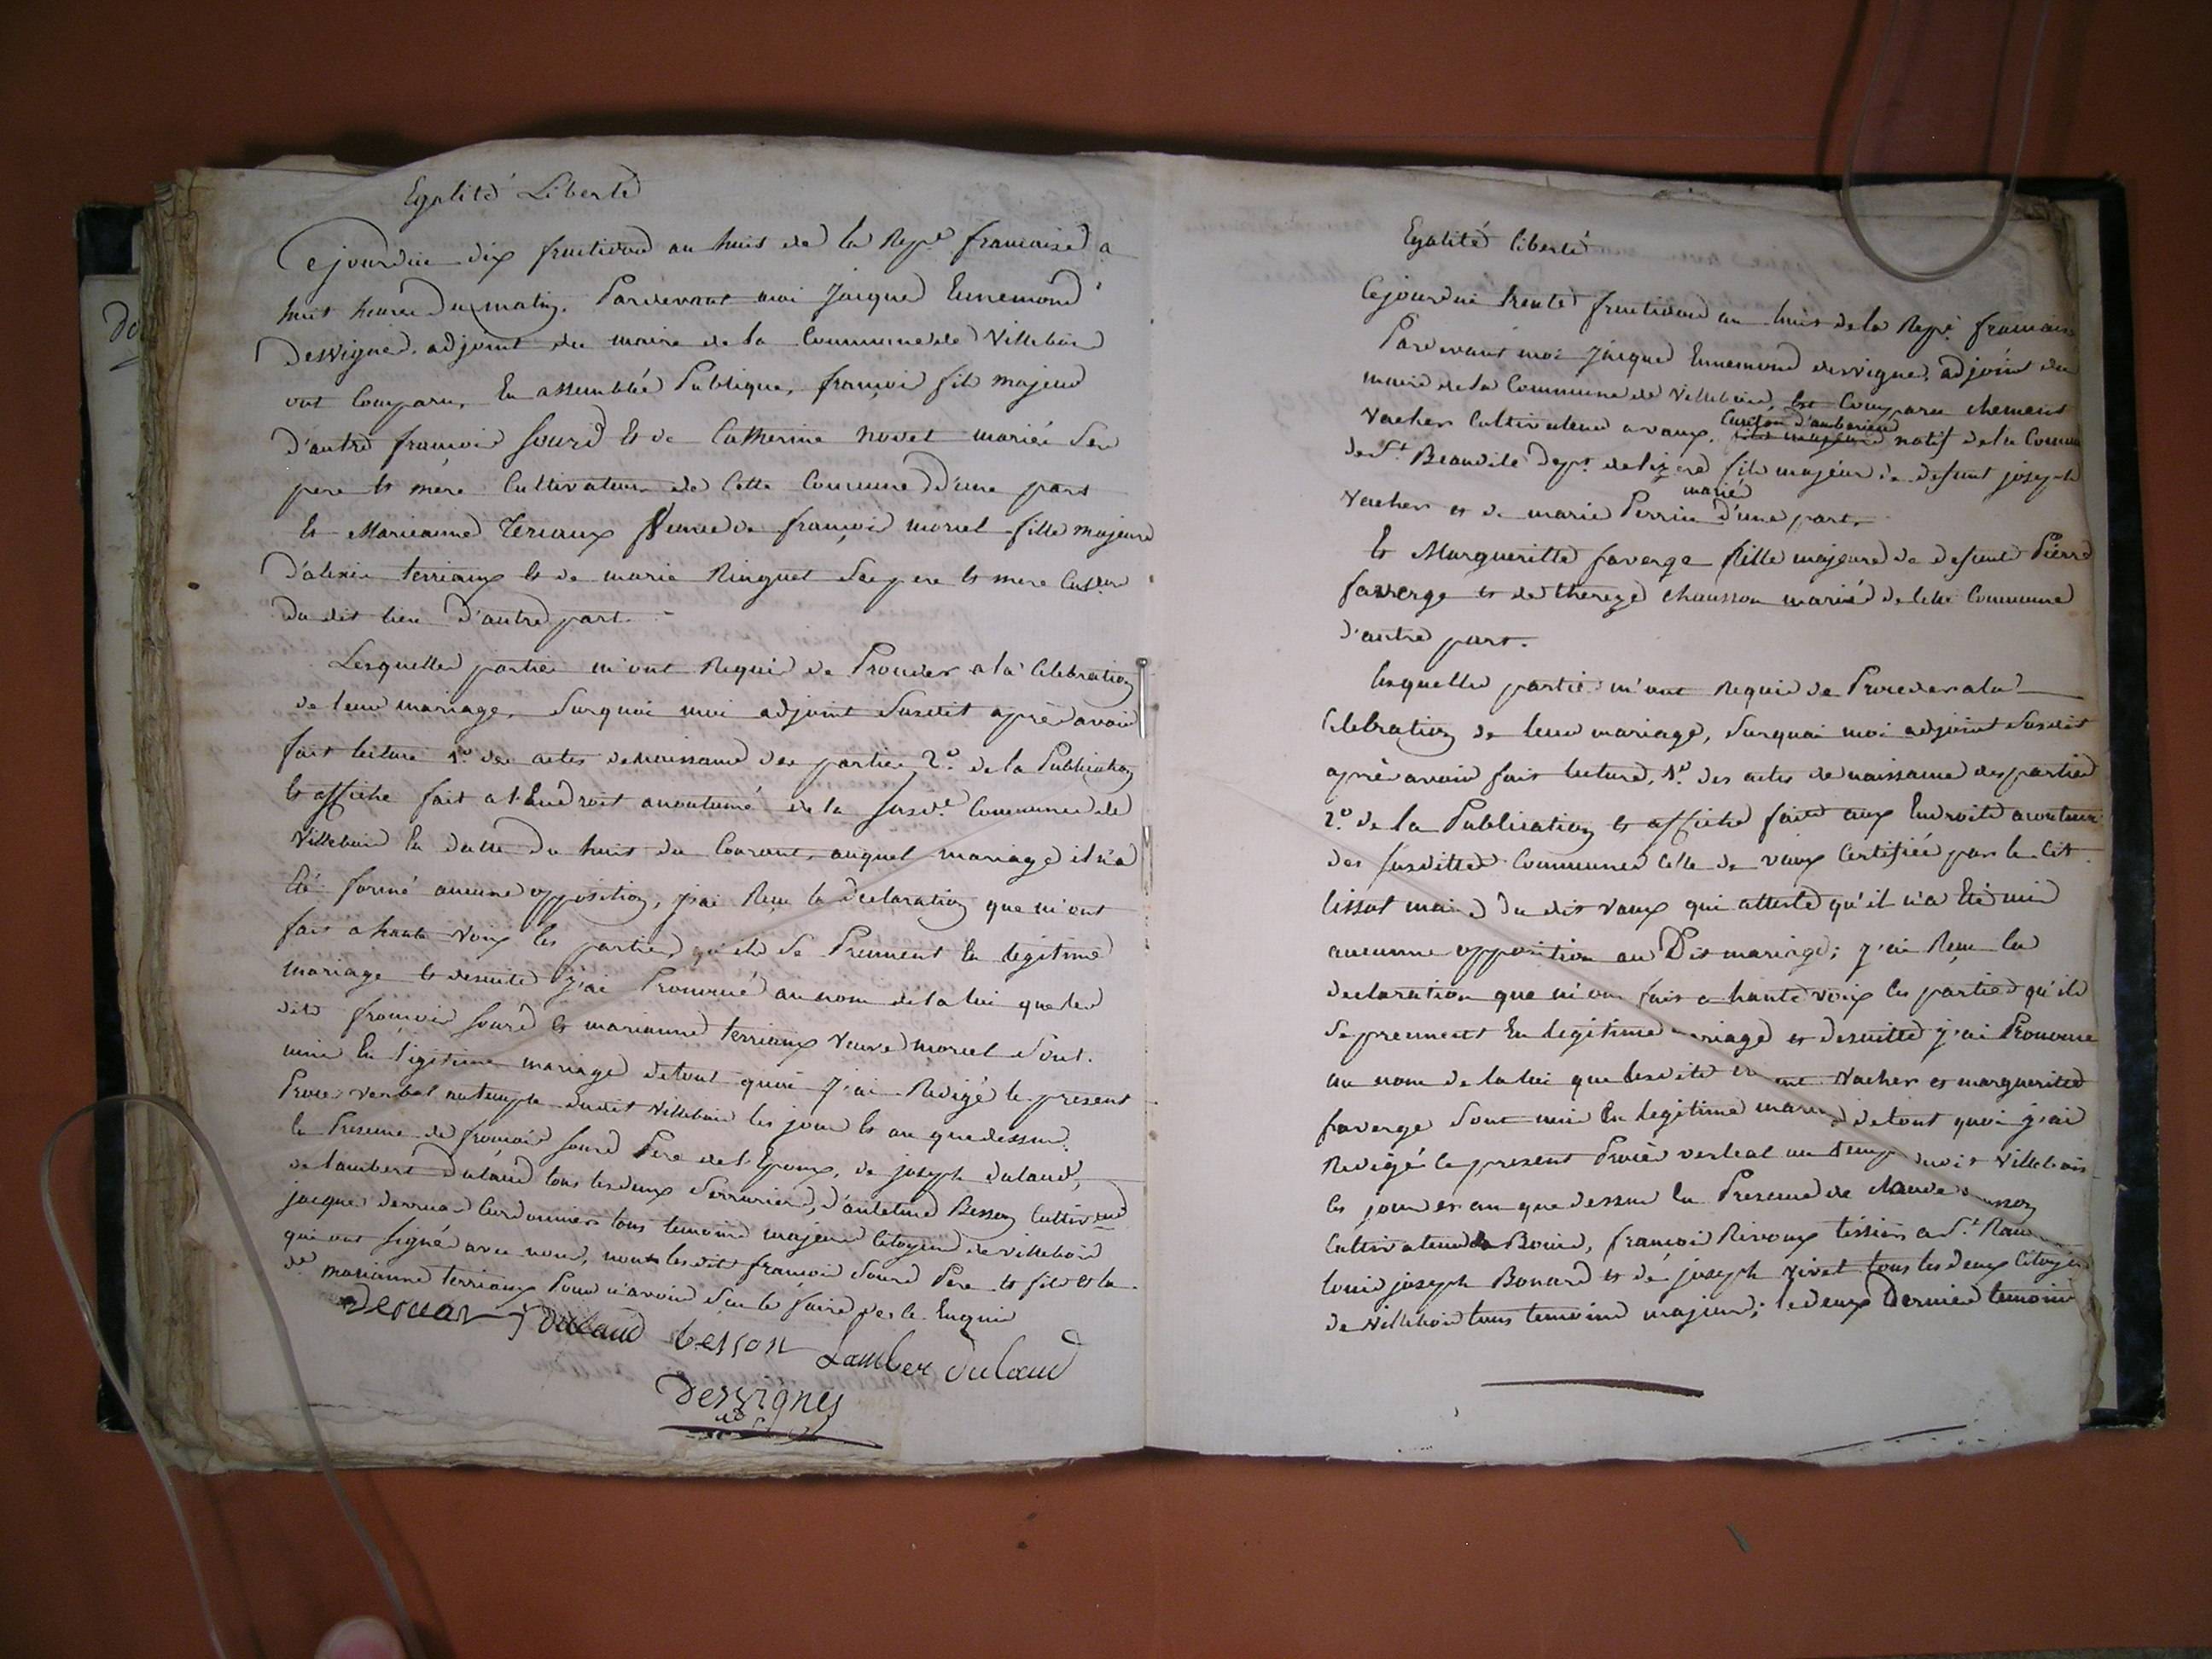 Egalité Liberté
Cejourdui dix fructidor an huit de la Repe francaise a
huit heures du matin. Pardevant moi Jacques Ennemond
Desvignes adjoint du maire de la Commune de Villebois
ont Comparu, En assemblée Publique, françois fils majeur
d'autre françois Sourd et de Catherine novet mariés Ses
pere et mere Cultivateurs de Cette Commune d'une part
Et Marieanne Teriaux Veuve de françois morcel fille majeure
d'alexis terriaux et de marie Ringuet Ses pere et mere Cult.
du dit lieu d'autre part.
Lesquelles parties m'ont Requis de Proceder a la Celebration
de leur mariage, Surquoi moi adjoint Susdit après avoir
fait lecture 1º des actes de naissance des parties 2º de la Publication
et affiche fait a l'Endroit acoutumé de la susde Commune de
Villebois En datte du huit du Courant, auquel mariage il n'a
Eté formé aucune opposition, j'ai Reçu la declaration que m'ont
fait a haute voix les parties qu'ils Se Prennent En legitime
mariage et desuite j'ai Prononcé au nom de la loi que les
dits françois Sourd et marianne terriaux veuve morcel Sont
unis En légitime mariage de tout quoi j'ai Redigé le present
Procès verbal au temple dudit Villebois les jour et an que dessus
En Presence de françois Sourd Pere de l'Epoux, de joseph dulaud,
de lambert dulaud tous les deux Serruriers, d'antelme Besson Cultivateur
jacques derruas Cordonnier tous temoins majeurs Citoyens de villebois
qui ont signé avec nous, non les dits françois Sourd Pere et fils et la
de marianne terriaux Pour n'avoir Su le faire de ce Enquis
Deruas J dulaud besson Lamber dulaud
Desvignes
Egalité liberté
Cejourdui trente fructidor an huit de la Repe francaise
Pardevant moi Jacques Ennemond desvignes, adjoint du
maire de la Commune de Villebois, Est Comparu Clement
Canton d'amberieu
Vacher Cultivateur a vaux, natif de la Commune
de St Beaudile Dept de lizere fils majeur de defunt joseph
mariés
Vacher et de marie Perrin d'une part.
Et Margueritte faverge fille majeure de defunt Pierre
faverge et de thereze chausson mariés de cette Commune
d'autre part.
lesquelles parties m'ont Requis de Proceder a la
Celebration de leur mariage, Surquoi moi adjoint Susdit
après avoir fait lecture, 1º des actes de naissance des parties
2º de la Publication et affiche faite aux Endroits acoutumé
des susdittes Communes Celle de vaux Certifiée par le Cit
lissot maire du dit vaux qui atteste qu'il n'a Eté mis
aucunne opposition au Dit mariage; j'ai Reçu la
declaration que m'ont fait a haute voix les parties qu'ils
Se prennent En legitime mariage et desuitte j'ai Prononcé
au nom de la loi que lesdits Vacher et margueritte
faverge Sont unis En legitime mariage de tout quoi j'ai
Redigé le present Procès verbal au temple dudit Villebois
les jour et an que dessus En Presence de claude
Cultivateur a Bouis, francois Rivoux tissier a St
louis joseph Bonard et de joseph vivet tous les deux Citoyens
de Villebois tous temoins majeurs; les deux Derniers temoins